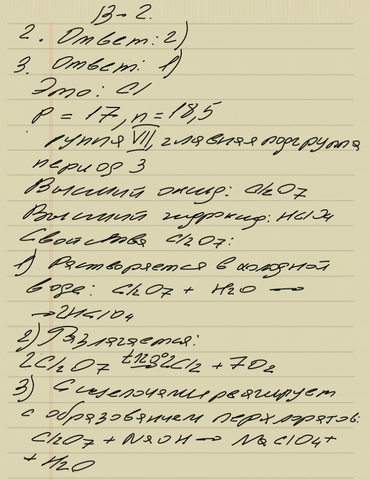 В-2.
2. Ответ: 2)
3. Ответ: 1)
Это: Cl
p = 17, n = 18,5
группа VII, главная подгруппа
период 3
Высший оксид: Cl2O7
Высший гидроксид: HClO4
Свойства Cl2O7:
1) Растворяется в холодной
воде: Cl2O7 + H2O →
→ 2HClO4
2) Разлагается:
2Cl2O7 2Cl2 + 7O2
3) С щелочами реагирует
с образованием перхлоратов:
Cl2O7 + NaOH → NaClO4 +
+ H2O